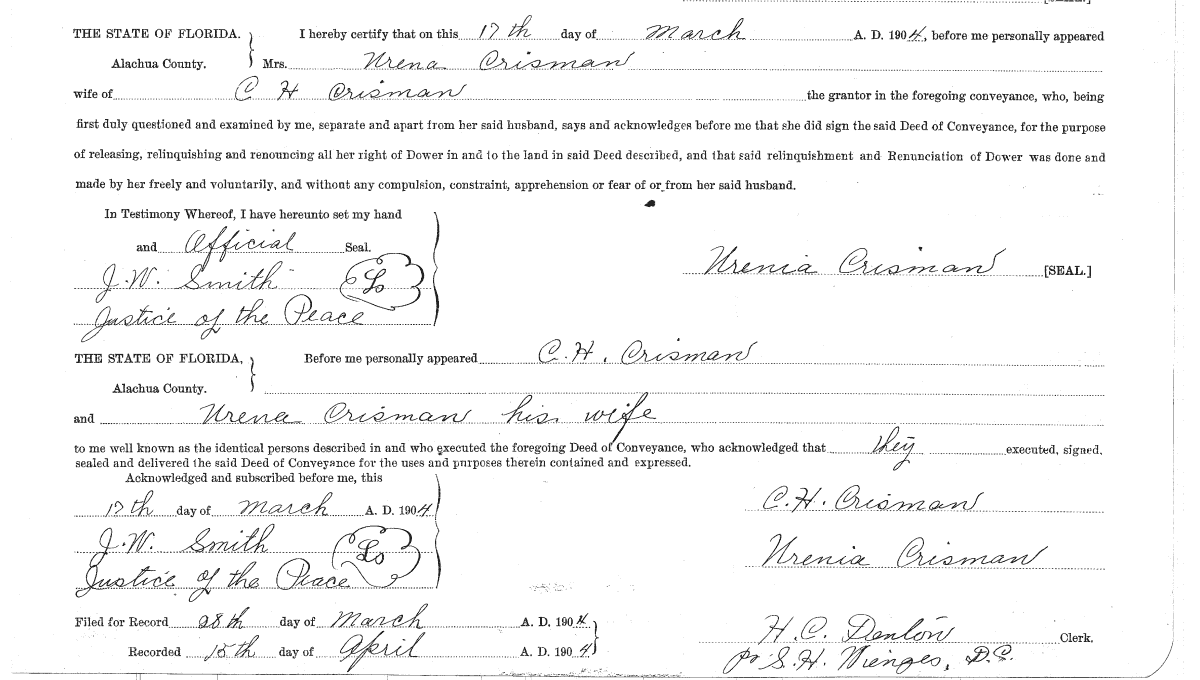 THE STATE OF FLORIDA. I hereby certify that on this 17th day of March A. D. 1904, before me personally appeared
Alachua County. Mrs. Urena Crisman
wife of C H Crisman the grantor in the foregoing conveyance, who, being
first duly questioned and examined by me, separate and apart from her said husband, says and acknowledges before me that she did sign the said Deed of Conveyance, for the purpose
of releasing, relinquishing and renouncing all her right of Dower in and to the land in said Deed described, and that said relinquishment and Renunciation of Dower was done and
made by her freely and voluntarily, and without any compulsion, constraint, apprehension or fear of or from her said husband.
In Testimony Whereof, I have hereunto set my hand
and Official Seal.
Urenia Crisman [SEAL.]
J.W. Smith Ls
Justice of the Peace
THE STATE OF FLORIDA, Before me personally appeared C. H. Crisman
Alachua County.
and Urena Crisman his wife
to me well known as the identical persons described in and who executed the foregoing Deed of Conveyance, who acknowledged that they executed, signed,
sealed and delivered the said Deed of Conveyance for the uses and purposes therein contained and expressed.
Acknowledged and subscribed before me, this
17th day of March A. D. 1904
C. H. Crisman
J.W. Smith Ls
Urenia Crisman
Justice of the Peace
Filed for Record 28th day of March A. D. 1904
H. C. Denton Clerk.
Recorded 15th day of April A. D. 1904
pr S. H. Wienges, D.C.